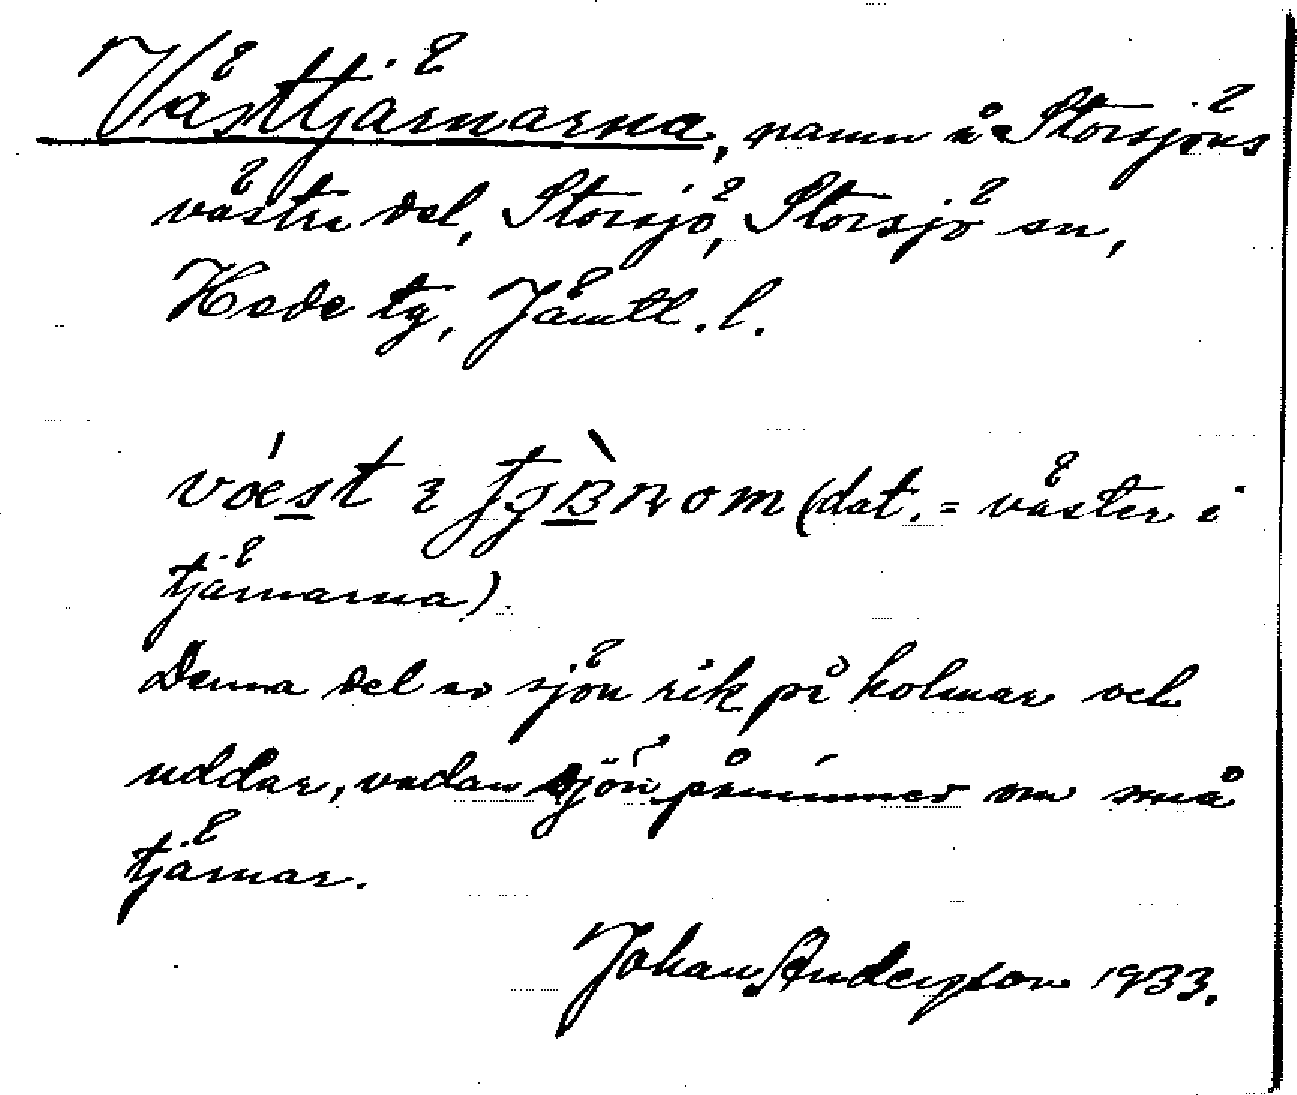 Västtjärnarna, namn å Storsjöns
västra del, Storsjö, Storsjö sn,
Hede tg, Jämtl. l.
(dat. = väster i
tjärnarna)
Denna del av sjön rik på holmar och
uddar, vadan sjön påminner om små
tjärnar.
Johan Anderson 1933.